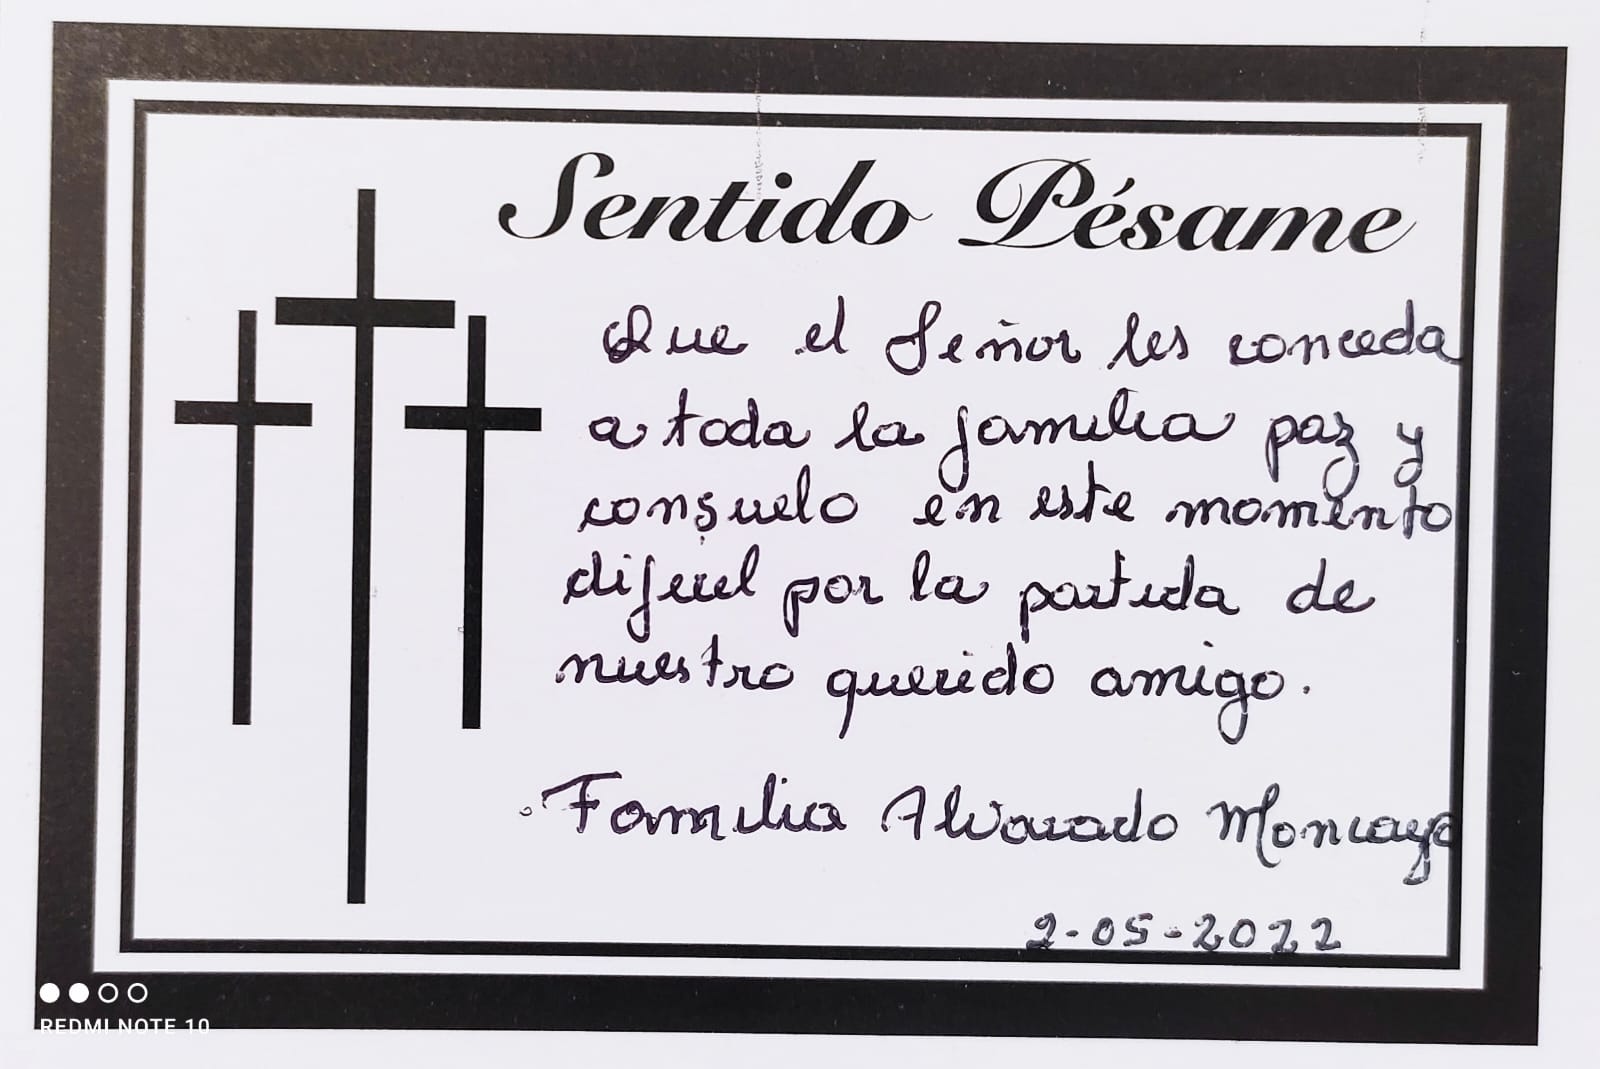 Sentido Pésame
Que el Señor les conceda
a toda la familia paz y
consuelo en este momento
difícil por la partida de
nuestro querido amigo.
Familia Alvarado Moncayo
2-05-2022
REDMI NOTE 10